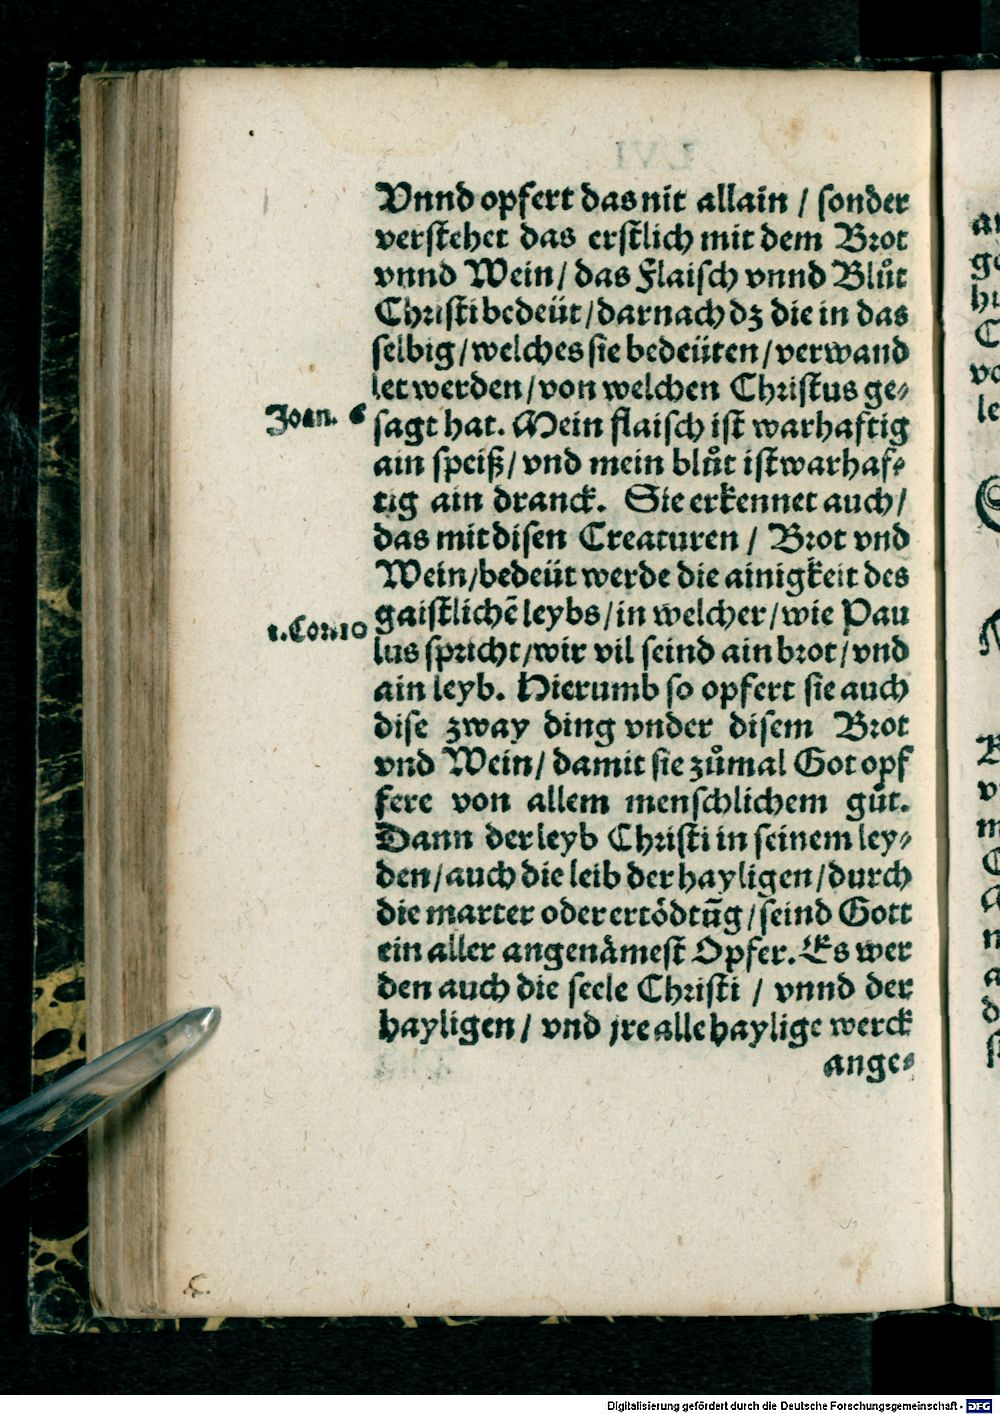 Vnnd opfert das nit allain / sonder
verstehet das erstlich mit dem Brot
vnnd Wein / das Flaisch vnnd Blůt
Christi bedeüt / darnach dz die in das
selbig / welches sie bedeüten / verwand
let werden / von welchen Christus ge⸗
Joan. 6
sagt hat. Mein flaisch ist warhaftig
ain speiß / vnd mein blůt ist warhaf⸗
tig ain dranck. Sie erkennet auch /
das mit disen Creaturen / Brot vnd
Wein / bedeüt werde die ainigkeit des
gaistlichē leybs / in welcher / wie Pau
1. Cor. 10
lus spricht / wir vil seind ain brot / vnd
ain leyb. Hierumb so opfert sie auch
dise zway ding vnder disem Brot
vnd Wein / damit sie zůmal Got opf
fere von allem menschlichem gůt.
Dann der leyb Christi in seinem ley⸗
den / auch die leib der hayligen / durch
die marter oder ertödtūg / seind Gott
ein aller angenämest Opfer. Es wer
den auch die seele Christi / vnnd der
hayligen / vnd jre alle haylige werck
ange⸗
Digitalisierung gefördert durch die Deutsche Forschungsgemeinschaft - DFG